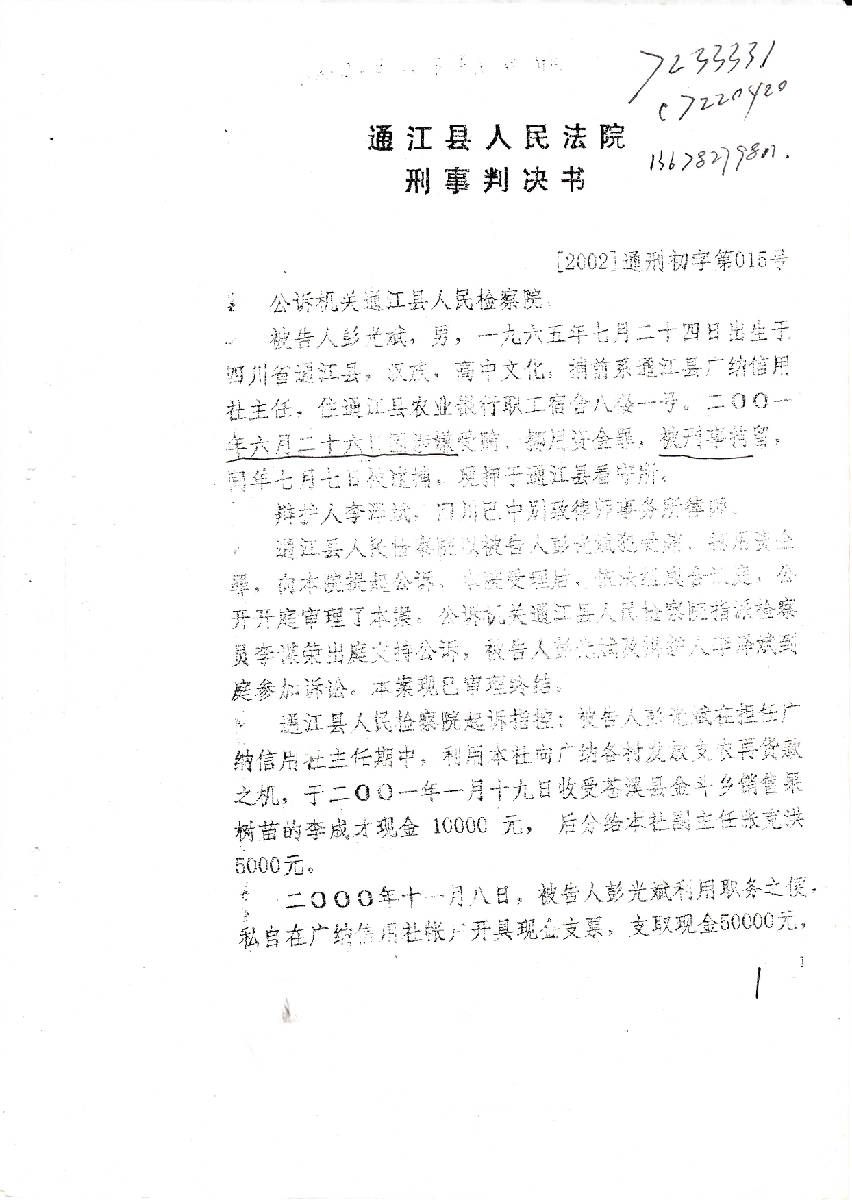 7233331
7220420
通江县人民法院
刑事判决书
[2002]通刑初字第015号
公诉机关通江县人民检察院。
被告人彭光斌，男，一九六五年七月二十四日出生于
四川省通江县，汉族，高中文化，捕前系通江县广纳信用
社主任，住通江县农业银行职工宿舍八楼一号。二〇〇一
年六月二十六日因涉嫌受贿、挪用资金罪，被刑事拘留，
同年七月七日被逮捕，现押于通江县看守所。
辩护人李泽斌，四川巴中 律师事务所律师。
通江县人民检察院以被告人彭光斌犯受贿、挪用资金
罪，向本院提起公诉，本院受理后，依法组成合议庭，公
开开庭审理了本案，公诉机关通江县人民检察院指派检察
员李 荣出庭支持公诉，被告人彭光斌及辩护人李泽斌到
庭参加诉讼。本案现已审理终结。
通江县人民检察院起诉指控：被告人彭光斌在担任广
纳信用社主任期中，利用本社向广纳各村发放支农贷款
之机，于二〇〇一年一月十九日收受苍溪县金斗乡销售果
树苗的李成才现金 10000 元， 后分给本社副主任张克洪
5000元。
二〇〇〇年十一月八日，被告人彭光斌利用职务之便，
私自在广纳信用社帐户开具现金支票，支取现金50000元，
1
1